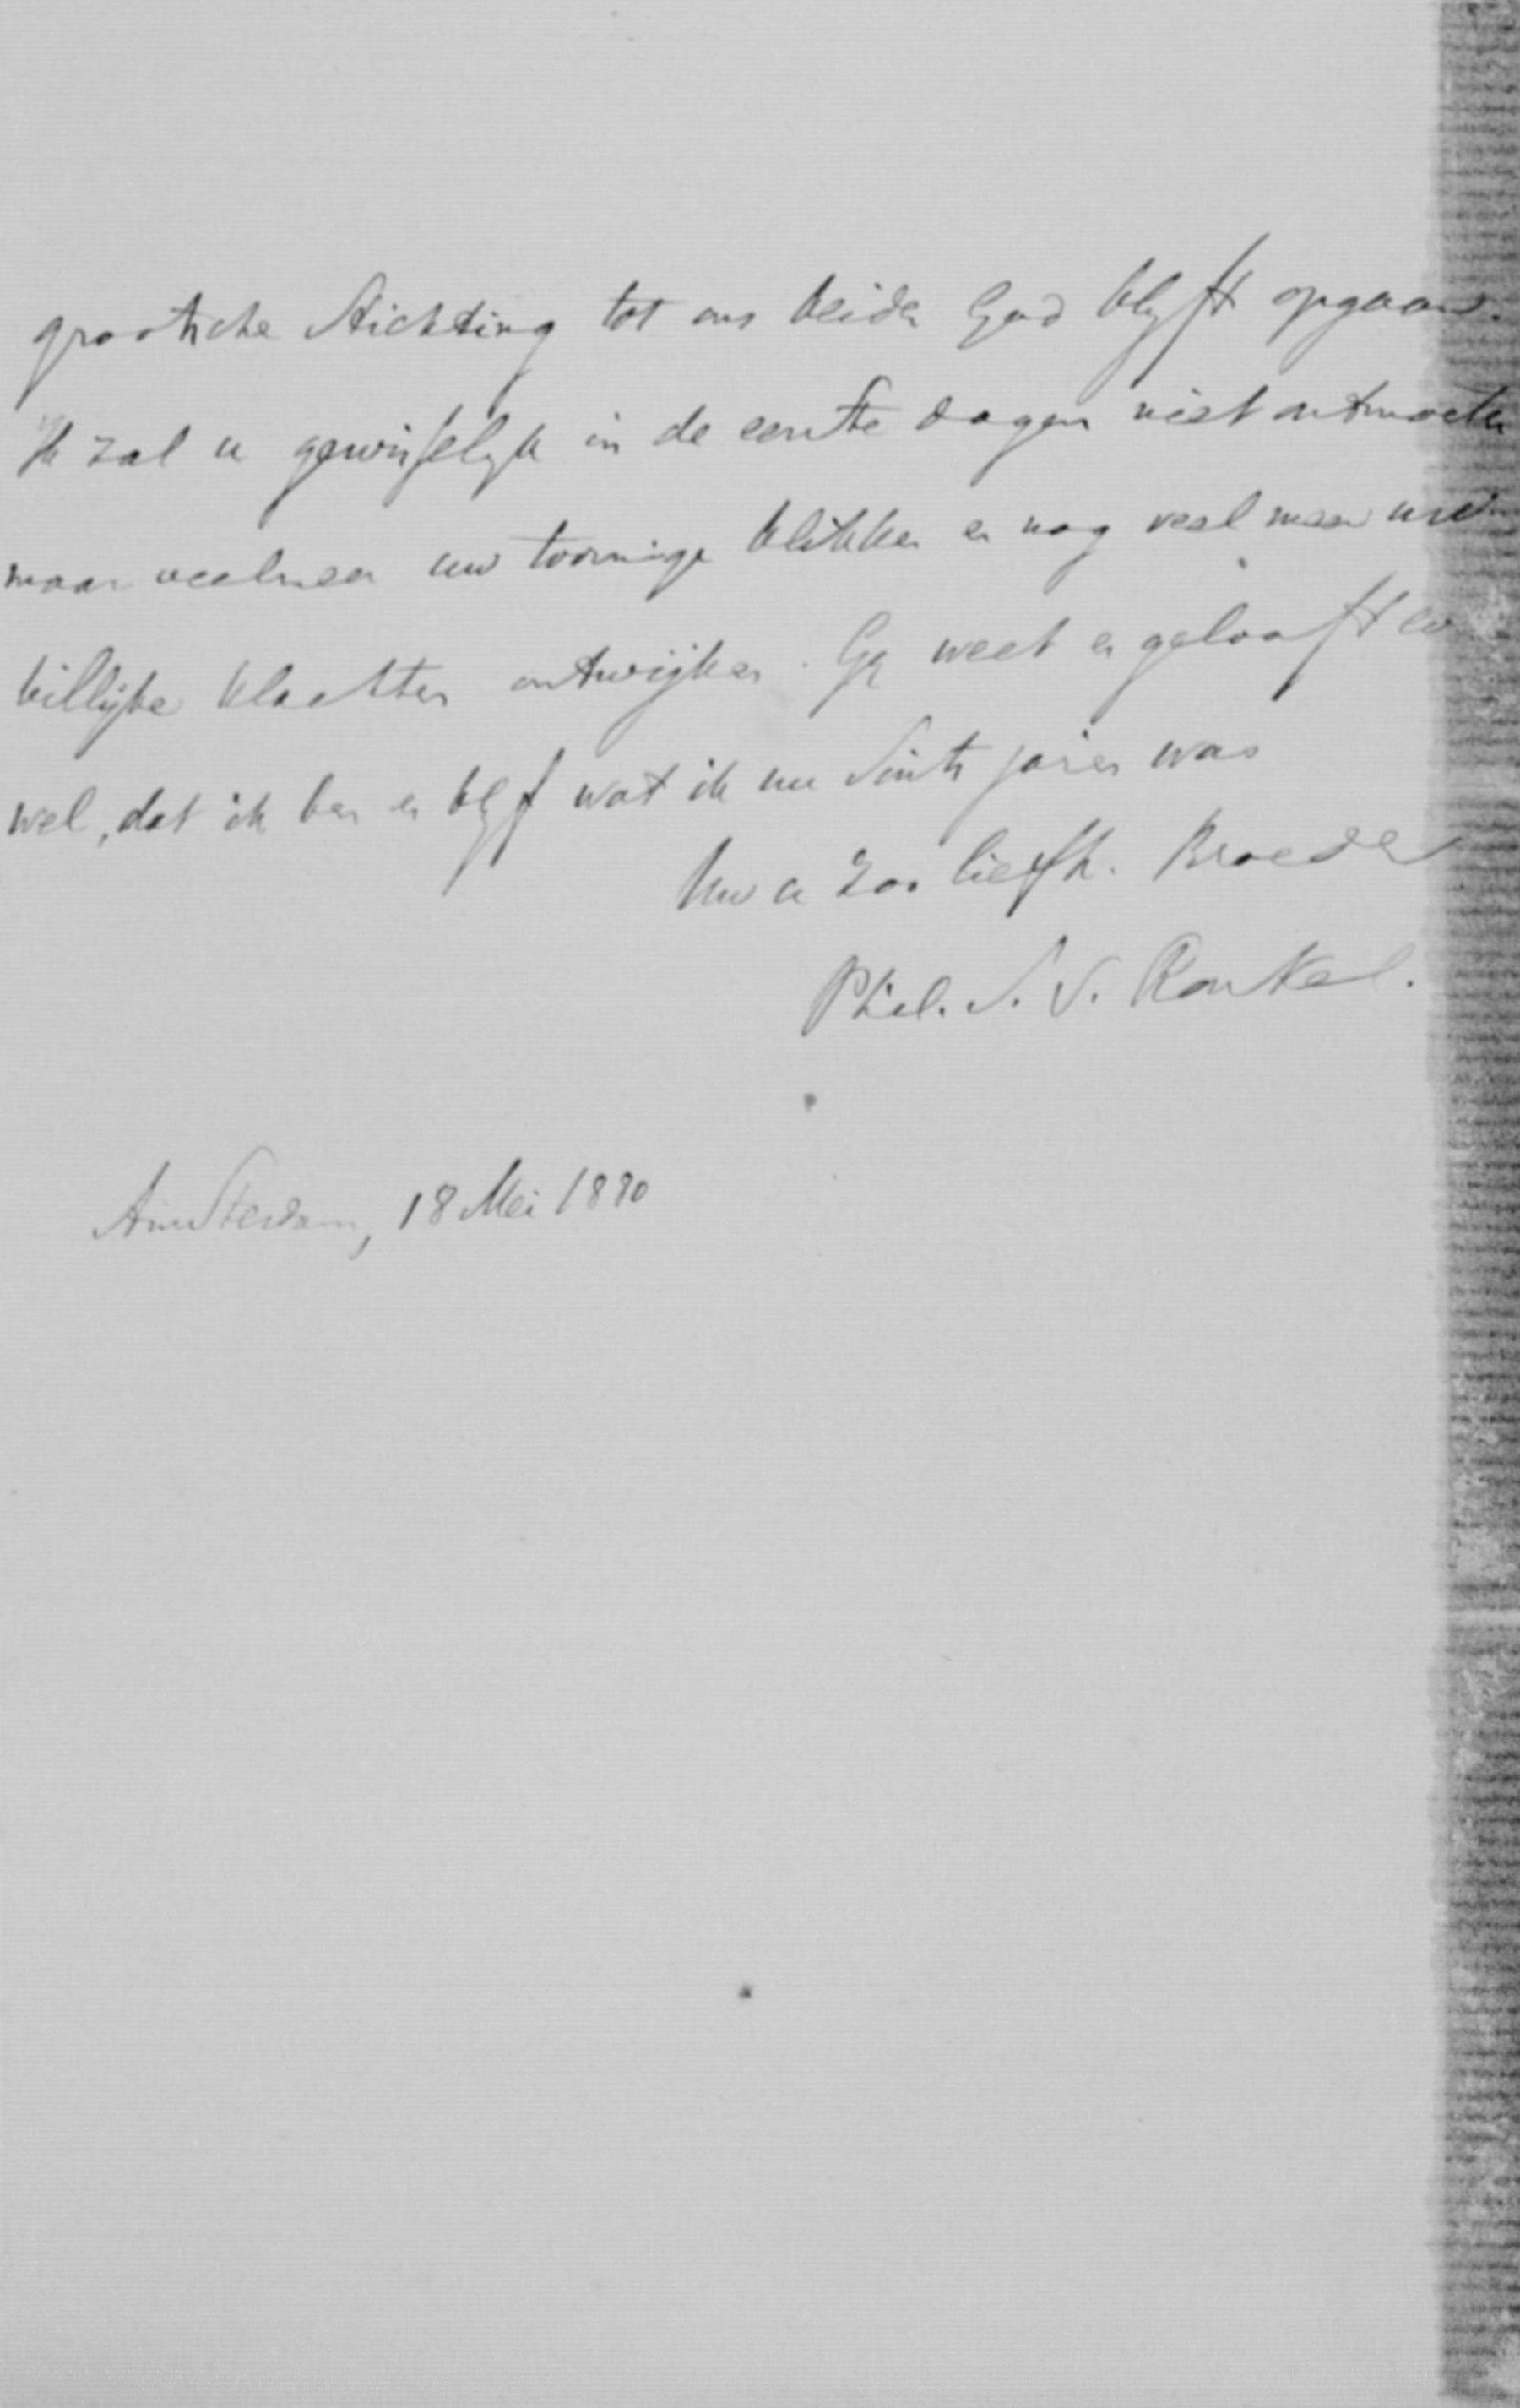 grootsche Stichting tot ons beider God blyft opgaan.
Ik zal u gewisselyk in de eerste dagen niet ontmoeten
maar veelmeer uw toornige blikken en nog veel meer uw
billijke klachten ontwijken. Gy weet en gelooft
wel, dat ik ben en blyf wat ik nu sints jaren was
Uw a Zoo liefh. Broeder
Phil. S. v. Ronkel.
Amsterdam, 18 Mei 1890